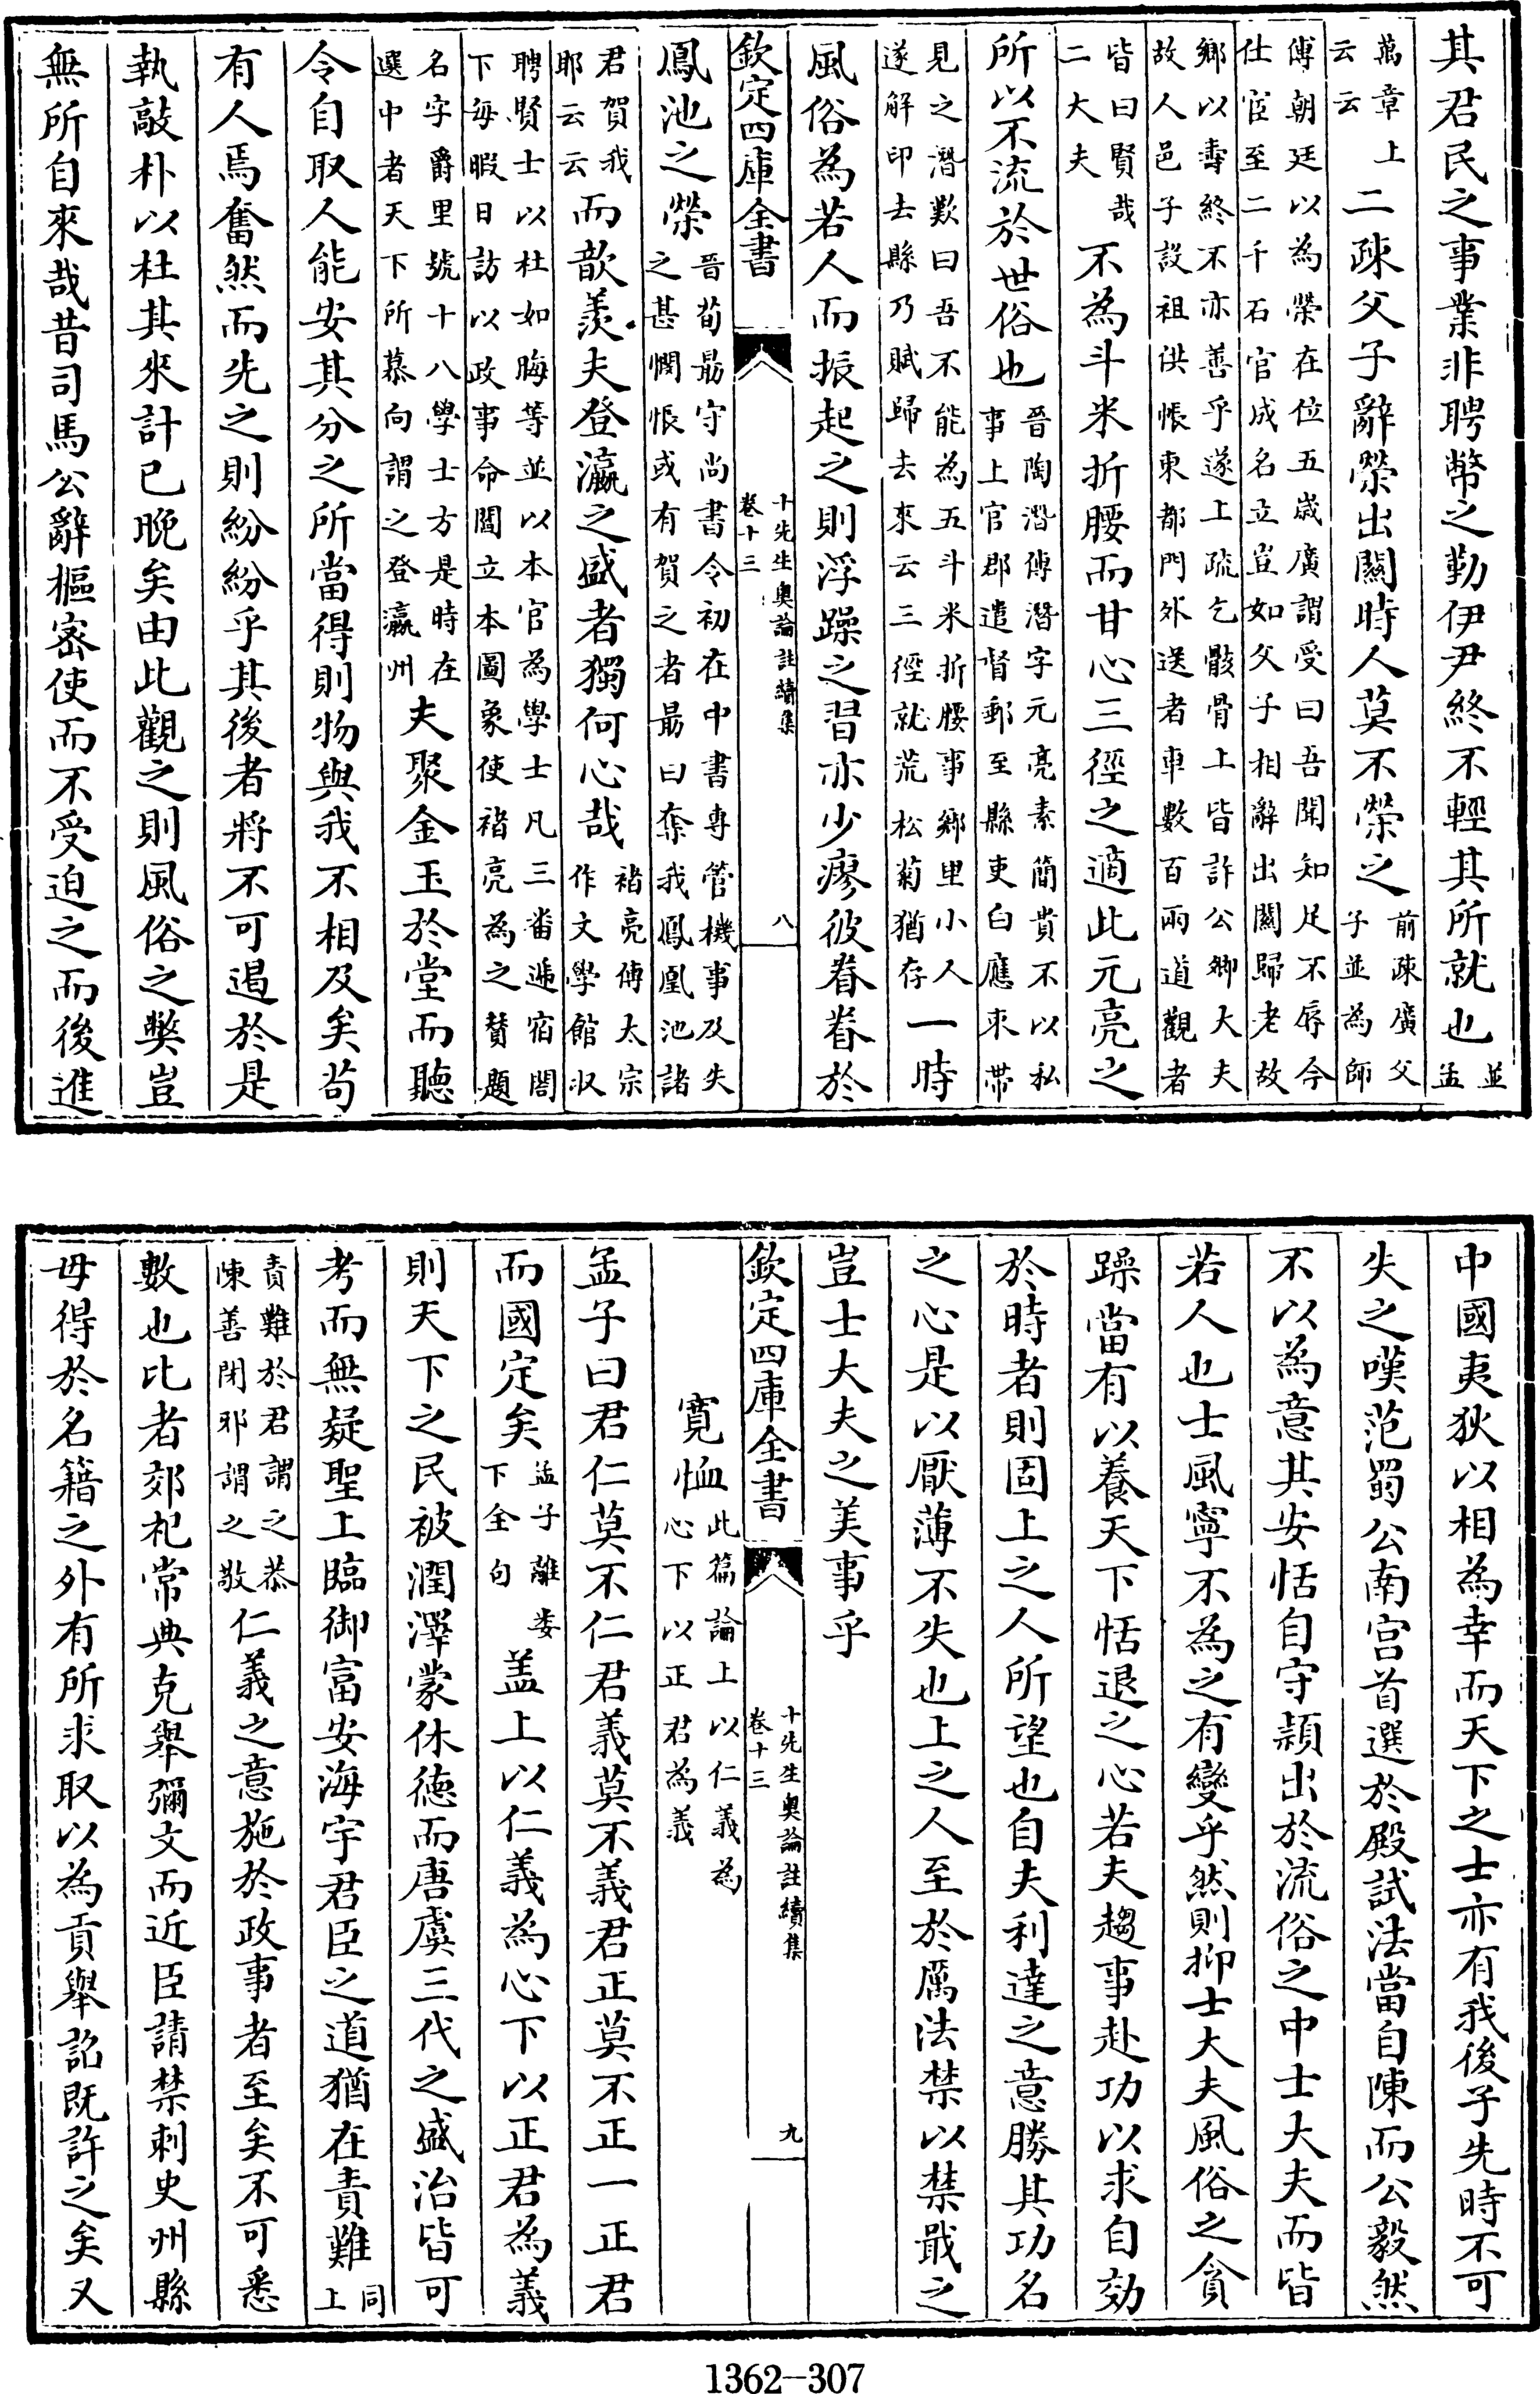 其君民之事業非聘幣之勤伊尹終不輕其所就也並孟
萬章上云云二疎父子辭榮出關時人莫不榮之前疎廣父子並為師
傅朝廷以為榮在位五歳廣謂受曰吾聞知足不辱今
仕宦至二千石官成名立豈如父子相辭出關歸老故
鄉以壽終不亦善乎遂上疏乞骸骨上皆許公卿大夫
故人邑子設祖供帳東都門外送者車數百兩道觀者
皆曰賢哉二大夫不為斗米折腰而甘心三徑之適此元亮之
所以不流於世俗也晉陶潛傳潛字元亮素簡貴不以私事上官郡遣督郵至縣吏白應束帶
見之潛歎曰吾不能為五斗米折腰事鄉里小人遂解印去縣乃賦歸去來云三徑就荒松菊猶存一時
風俗為若人而振起之則浮躁之習亦少瘳彼眷眷於
欽定四庫全書
十先生奥論註續集
卷十三
八
鳳池之榮晉荀勗守尚書令初在中書專管機事及失之甚惘悵或有賀之者勗曰奪我鳳凰池諸
君賀我耶云云而歆羨夫登瀛之盛者獨何心哉褚亮傳太宗作文學館収
聘賢士以杜如晦等並以本官為學士凡三番遞宿閤
下毎暇日訪以政事命閻立本圖象使褚亮為之賛題
名字爵里號十八學士方是時在選中者天下所慕向謂之登瀛州夫聚金玉於堂而聽
令自取人能安其分之所當得則物與我不相及矣苟
有人焉奮然而先之則紛紛乎其後者將不可遏於是
執敲朴以杜其來計已晚矣由此觀之則風俗之弊豈
無所自來哉昔司馬公辭樞密使而不受迫之而後進
中國夷狄以相為幸而天下之士亦有我後子先時不可
失之嘆范蜀公南宫首選於殿試法當自陳而公毅然
不以為意其安恬自守頴出於流俗之中士大夫而皆
若人也士風寧不為之有變乎然則抑士大夫風俗之貪
躁當有以養天下恬退之心若夫趨事赴功以求自効
於時者則固上之人所望也自夫利達之意勝其功名
之心是以厭薄不失也上之人至於厲法禁以禁戢之
豈士大夫之美事乎
欽定四庫全書
十先生奥論註續集
卷十三
九
寛恤此篇論上以仁義為心下以正君為義
孟子曰君仁莫不仁君義莫不義君正莫不正一正君
而國定矣孟子離婁下全句盖上以仁義為心下以正君為義
則天下之民被潤澤蒙休徳而唐虞三代之盛治皆可
考而無疑聖上臨御富安海宇君臣之道猶在責難同上
責難於君謂之恭陳善閉邪謂之敬仁義之意施於政事者至矣不可悉
數也比者郊祀常典克舉彌文而近臣請禁刺史州縣
毋得於名籍之外有所求取以為貢舉詔既許之矣又
1362-307